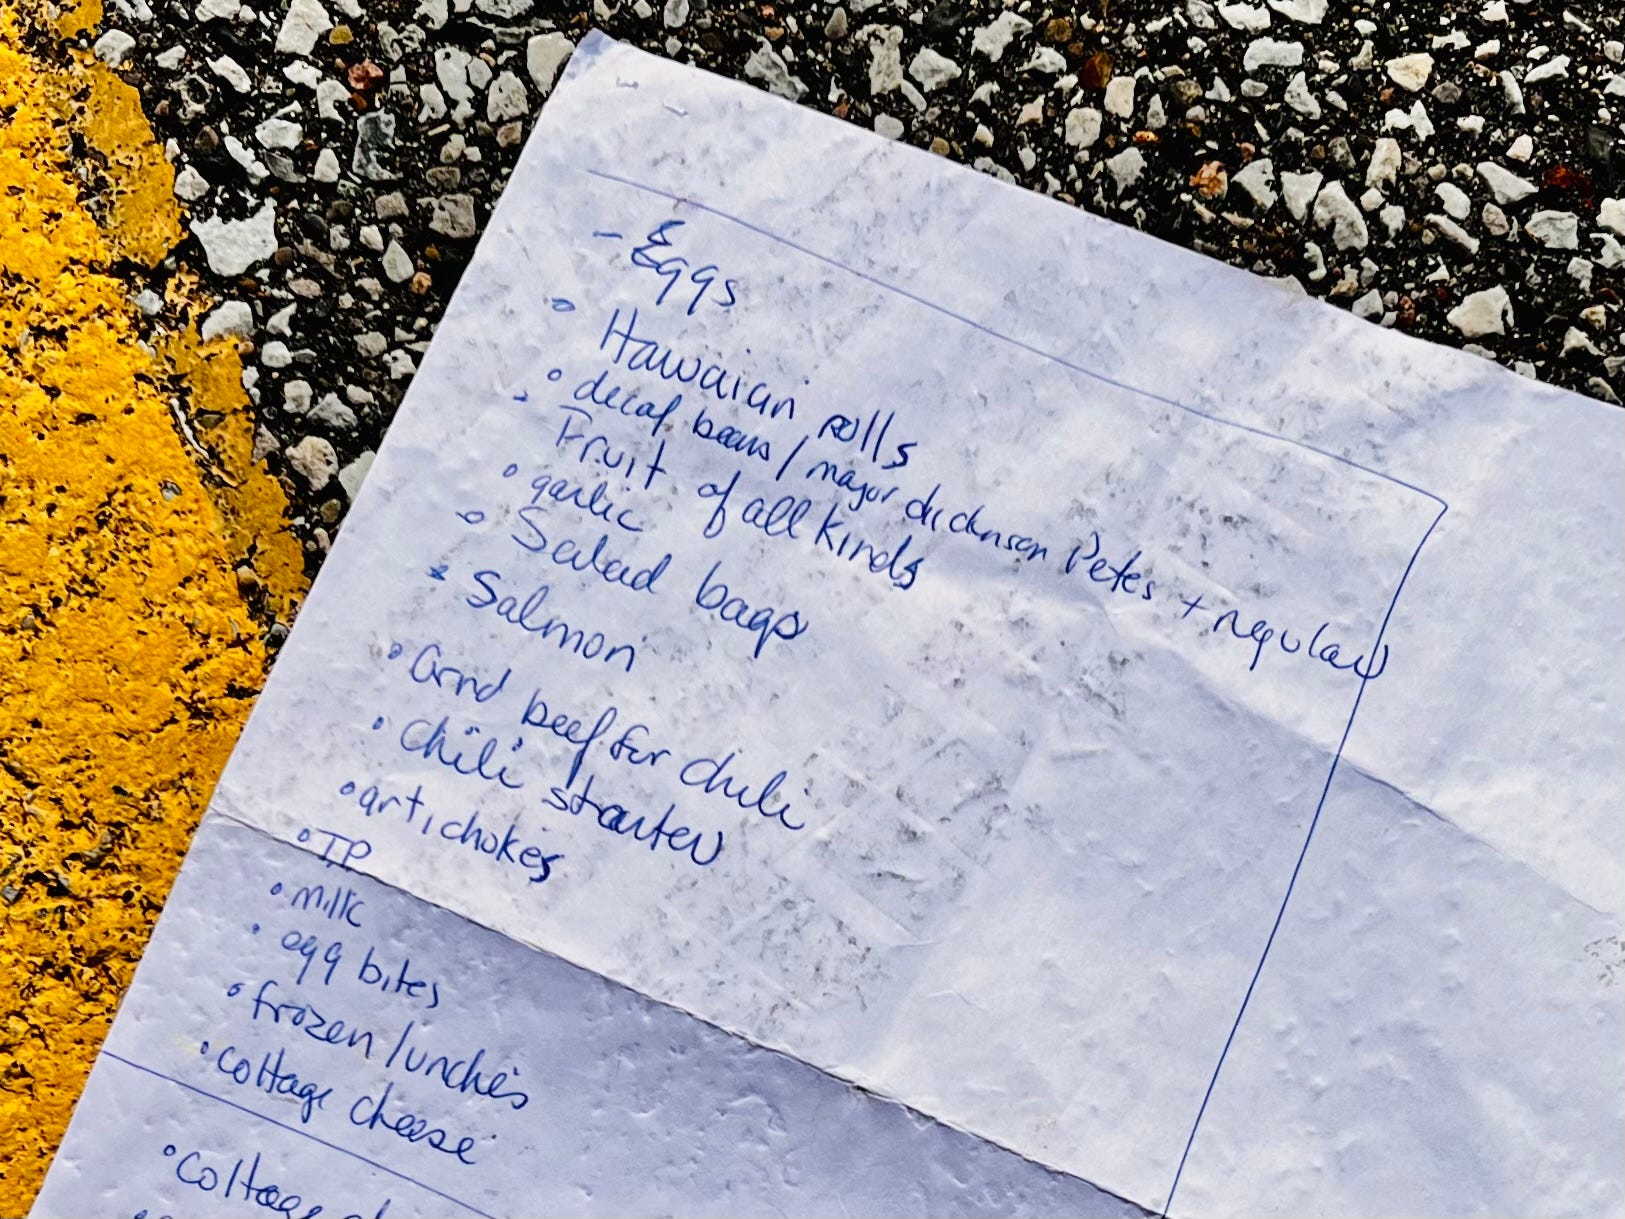 - Eggs
° Hawaiian rolls
° decaf beans / major dickinson Petes + regular
• Fruit of all kinds
° garlic
° Salad bags
• Salmon
• Grnd beef for chili
• Chili starter
• artichokes
• TP
• milk
• egg bites
• frozen lunches
• cottage cheese
• Cottage